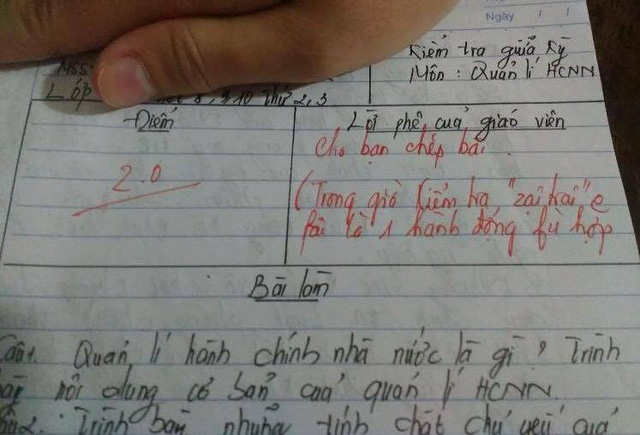 Ngày / /
Kiểm tra giữa kỳ
MSS
Môn : Quản lí HCNN
LỚP 8, 9 10 Thứ 2, 3
Điểm
Lời phê của giáo viên
Cho bạn chép bài.
2.0
(Trong giờ kiểm tra, "zai trai" e
fải là 1 hành động fù hợp
Bài làm
Câu1. Quản lí hành chính nhà nước là gì? Trình
nội dung cơ bản của quản lí HCNN.
Trình bày những tính chất chủ yếu của